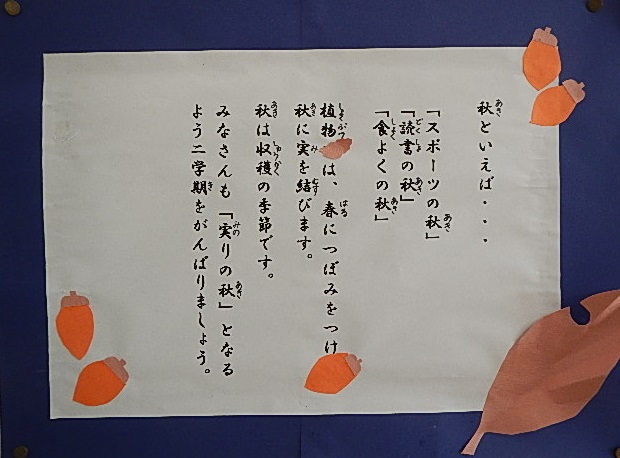 秋といえば・・・
「スポーツの秋」
「読書の秋」
「食よくの秋」
植物は、春につぼみをつけ
秋に実を結びます。
秋は収穫の季節です。
みなさんも「実りの秋」となる
よう二学期をがんばりましょう。